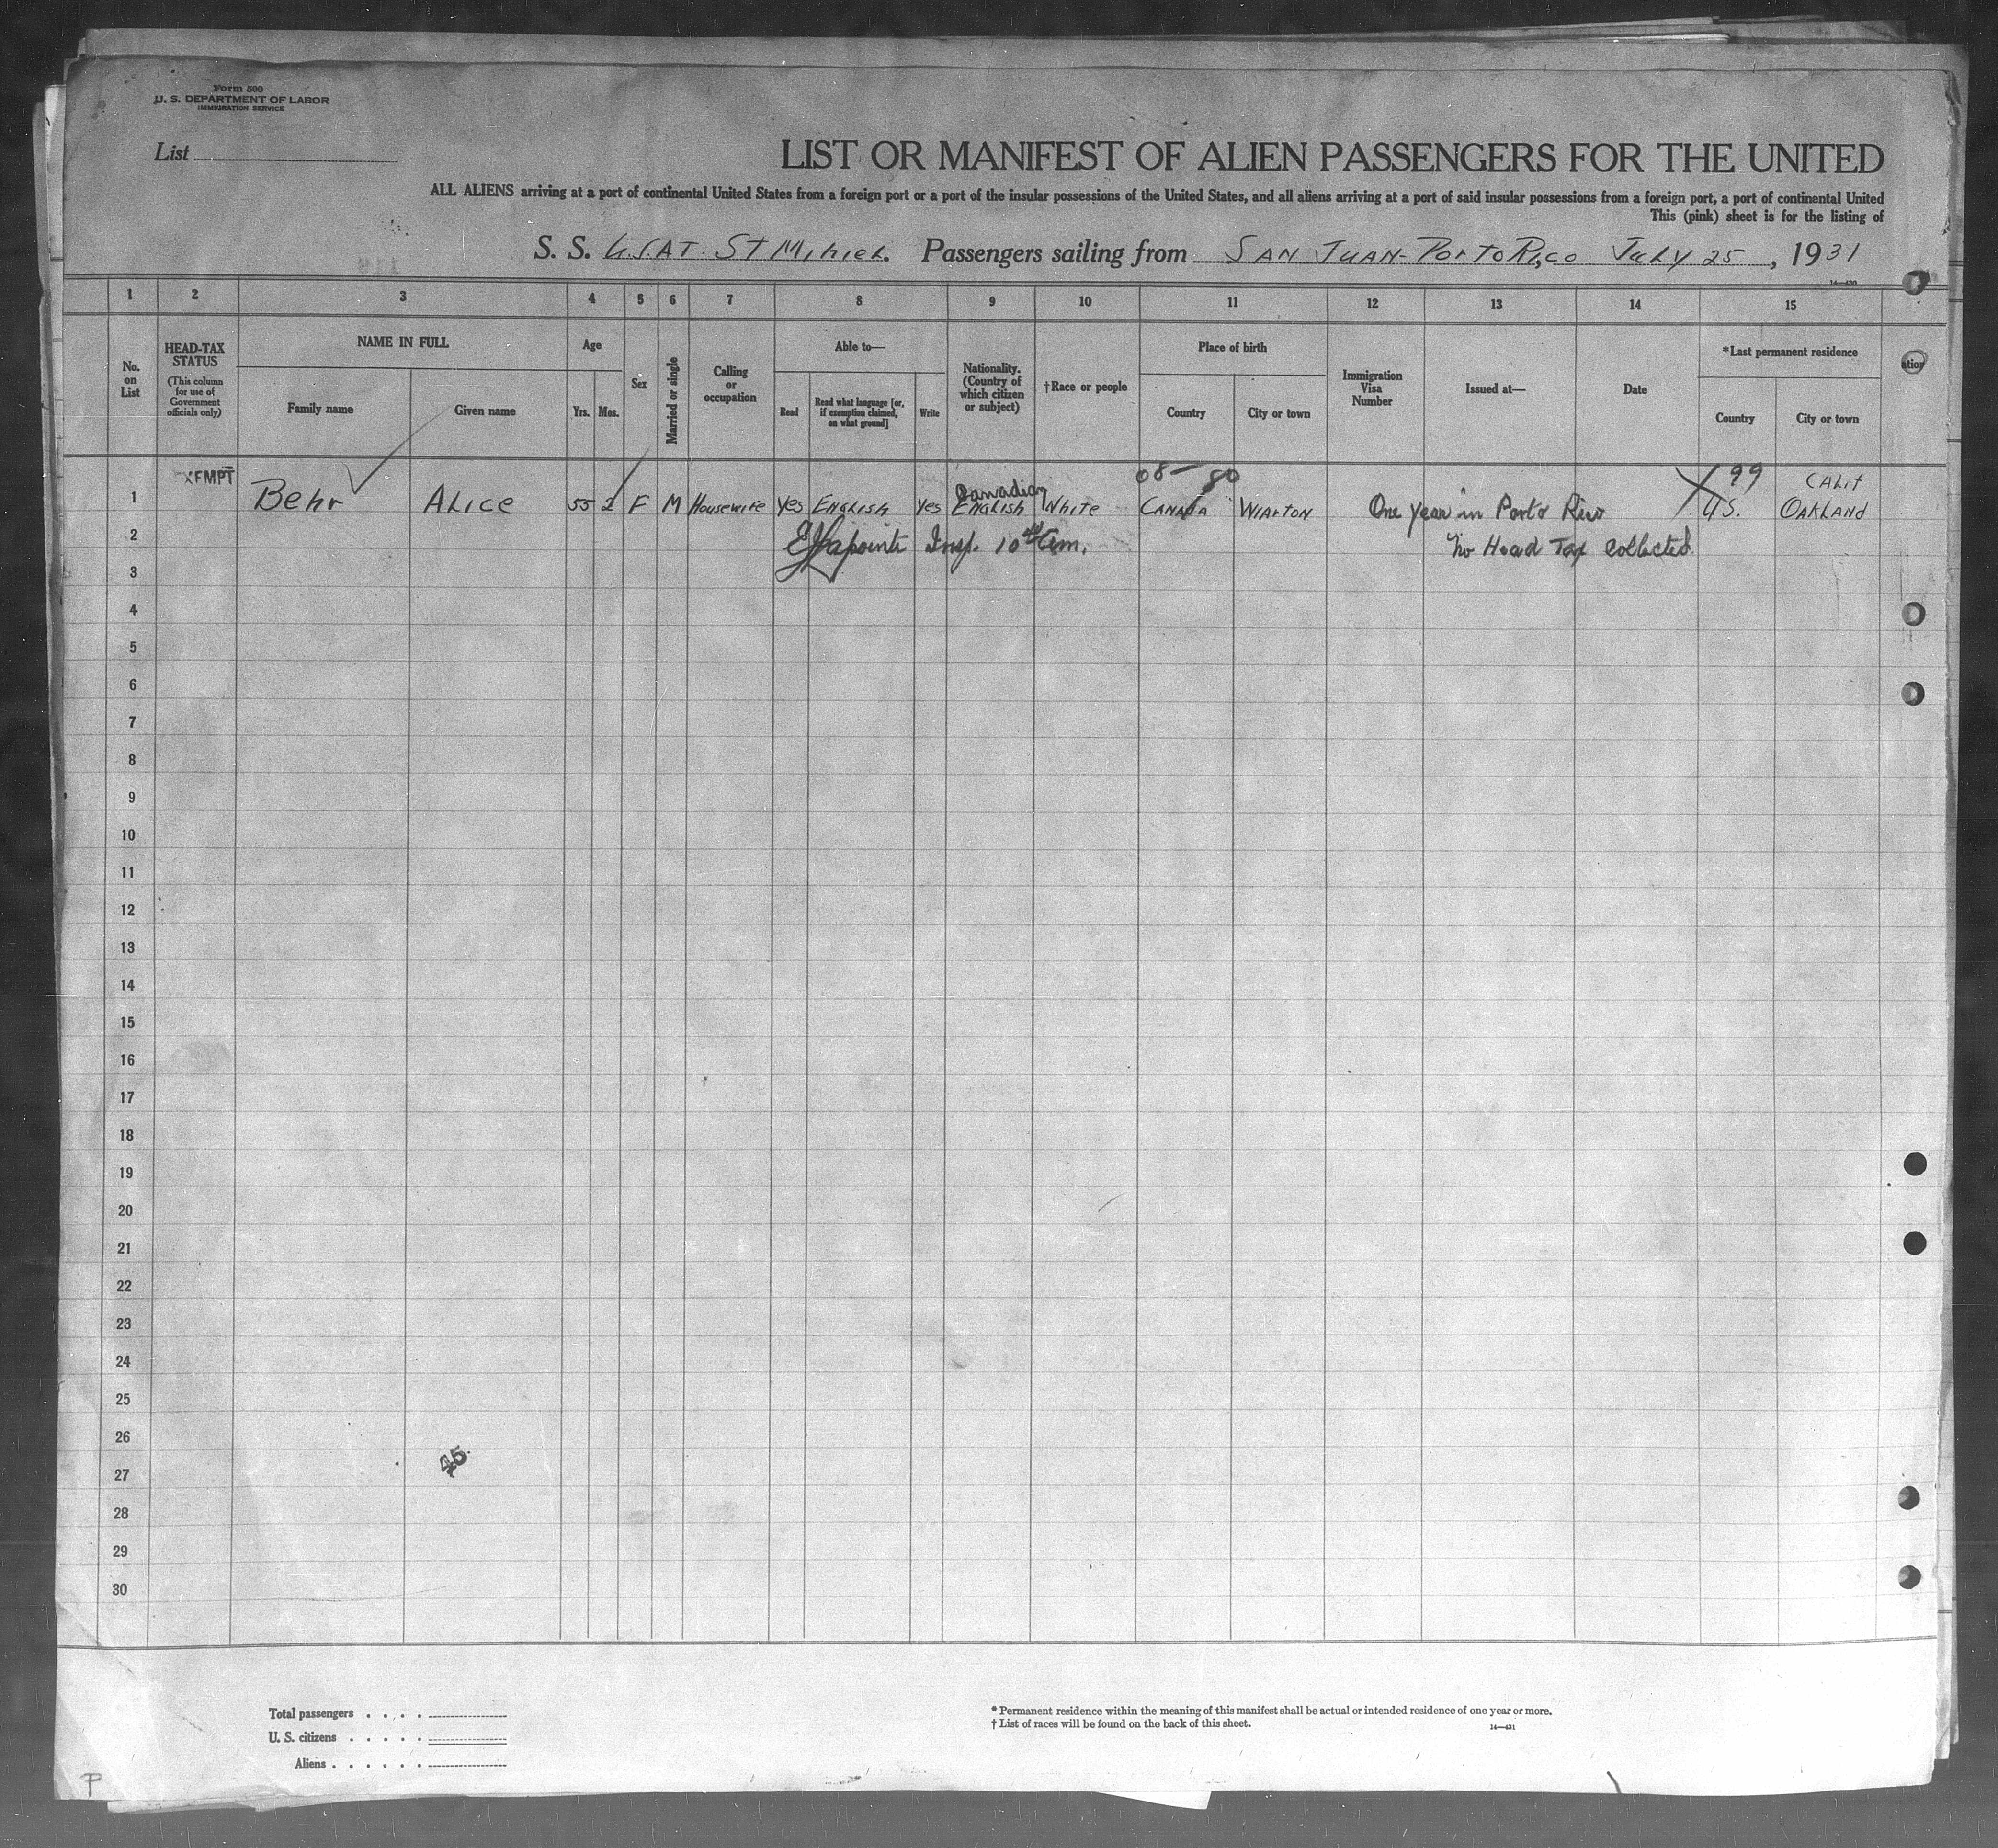 Form 500
U. S. DEPARTMENT OF LABOR
IMMIGRATION SERVICE
List
LIST OR MANIFEST OF ALIEN PASSENGERS FOR THE UNITED
ALL ALIENS arriving at a port of continental United States from a foreign port or a port of the insular possessions of the United States, and all aliens arriving at a port of said insular possessions from a foreign port, a port of continental United
This (pink) sheet is for the listing of
S. S. U.S.A.T. ST MIHIEL. Passengers sailing from SAN JUAN-PORTO RICO JULY 25, 1931
1 2 3 4 5 6 7 8 9 10 11 12 13 14 15
No. on List
HEAD-TAX STATUS
(This column for use of Government officials only)
NAME IN FULL
Family name
Given name
Age
Yrs. Mos.
Sex
Married or single
Calling or occupation
Able to—
Read
Read what language [or, if exemption claimed, on what ground]
Write
Nationality. (Country of which citizen or subject)
†Race or people
Place of birth
Country
City or town
Immigration Visa Number
Issued at—
Date
*Last permanent residence
Country
City or town
08- 80
99
CALIF
Canadian
1 Behr ALICE 55 2 F M Housewife Yes ENGLISH Yes ENGLISH White CANADA WIARTON One year in Porto Rico U.S. OAKLAND
2 Insp. 10 am. No Head Tax collected
3
4
5
6
7
8
9
10
11
12
13
14
15
16
17
18
19
20
21
22
23
24
25
26
45
27
28
29
30
Total passengers
U. S. citizens
Aliens
*Permanent residence within the meaning of this manifest shall be actual or intended residence of one year or more.
†List of races will be found on the back of this sheet.
14—431
P